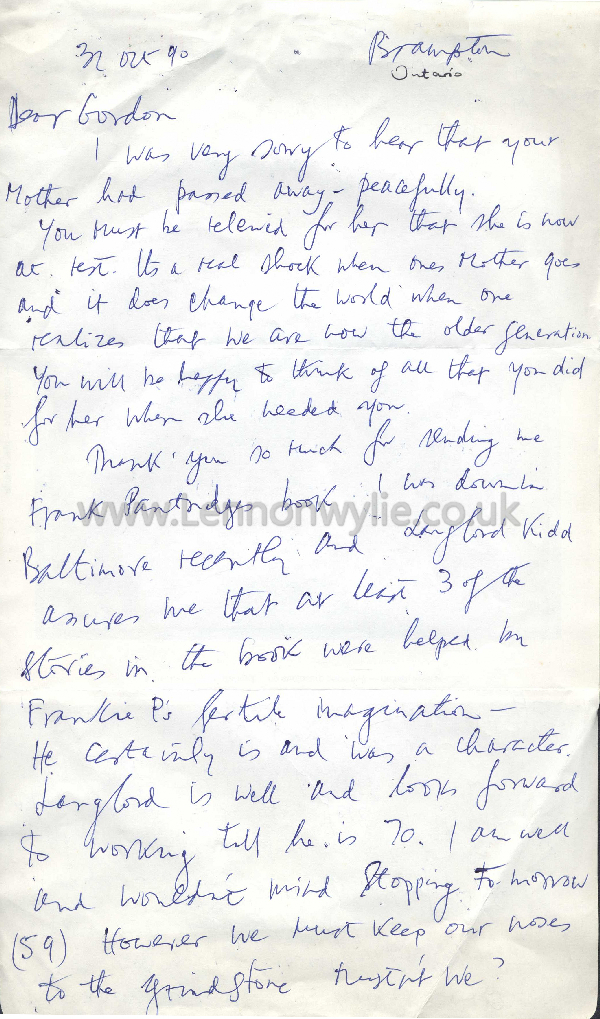 32 Oct 90 Brampton
Ontario
Dear Gordon
I was very sorry to hear that your
Mother had passed away - peacefully.
You must be relieved for her that she is now
at rest. Its a real shock when ones Mother goes
and it does change the world when one
realizes that we are now the older generation
You will be happy to think of all that you did
for her when she needed you.
Thank you so much for sending me
Frank Pantridges book. I was down in
www.Lennonwylie.co.uk
Baltimore recently and Langford Kidd
assures me that at least 3 of the
stories in the book were helped by
Frankie P's fertile imagination -
He certainly is and was a character.
Langford is well and looks forward
to working till he is 70. I am well
and wouldn't mind stopping tomorrow
(59) However we must keep our noses
to the grindstone mustn't we?